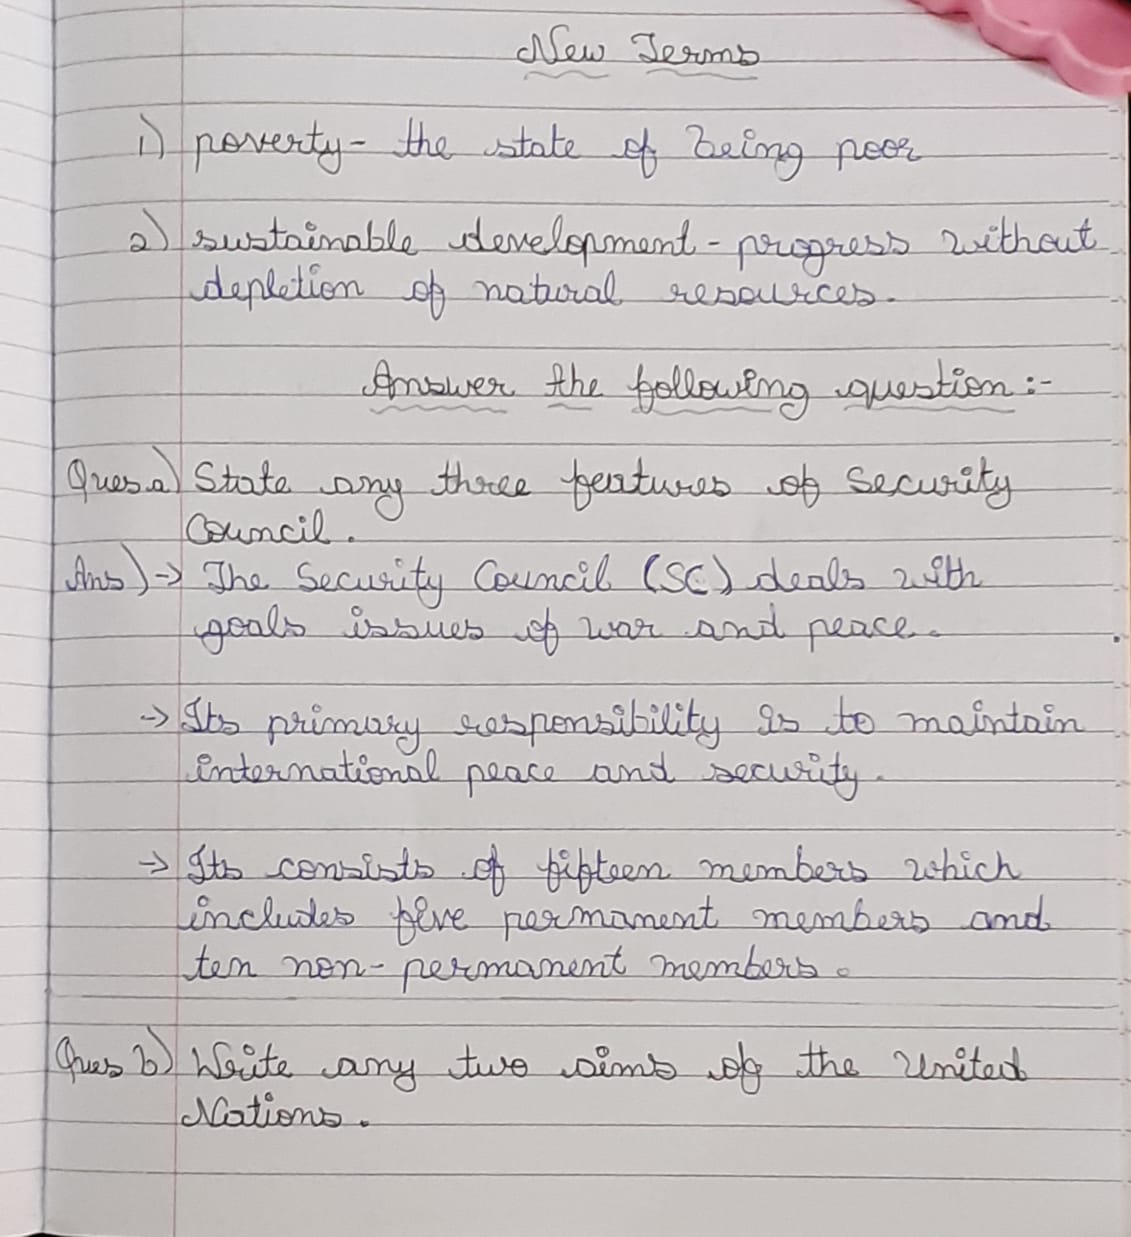 New Terms
1) poverty - the state of being poor
2) sustainable development - progress without
depletion of natural resources.
Answer the following question :-
Ques a) State any three features of Security
Council.
Ans) → The Security Council (SC) deals with
goals issues of war and peace.
→ Its primary responsibility is to maintain
international peace and security.
→ Its consists of fifteen members which
includes five permanent members and
ten non-permanent members.
Ques b) Write any two aims of the United
Nations.